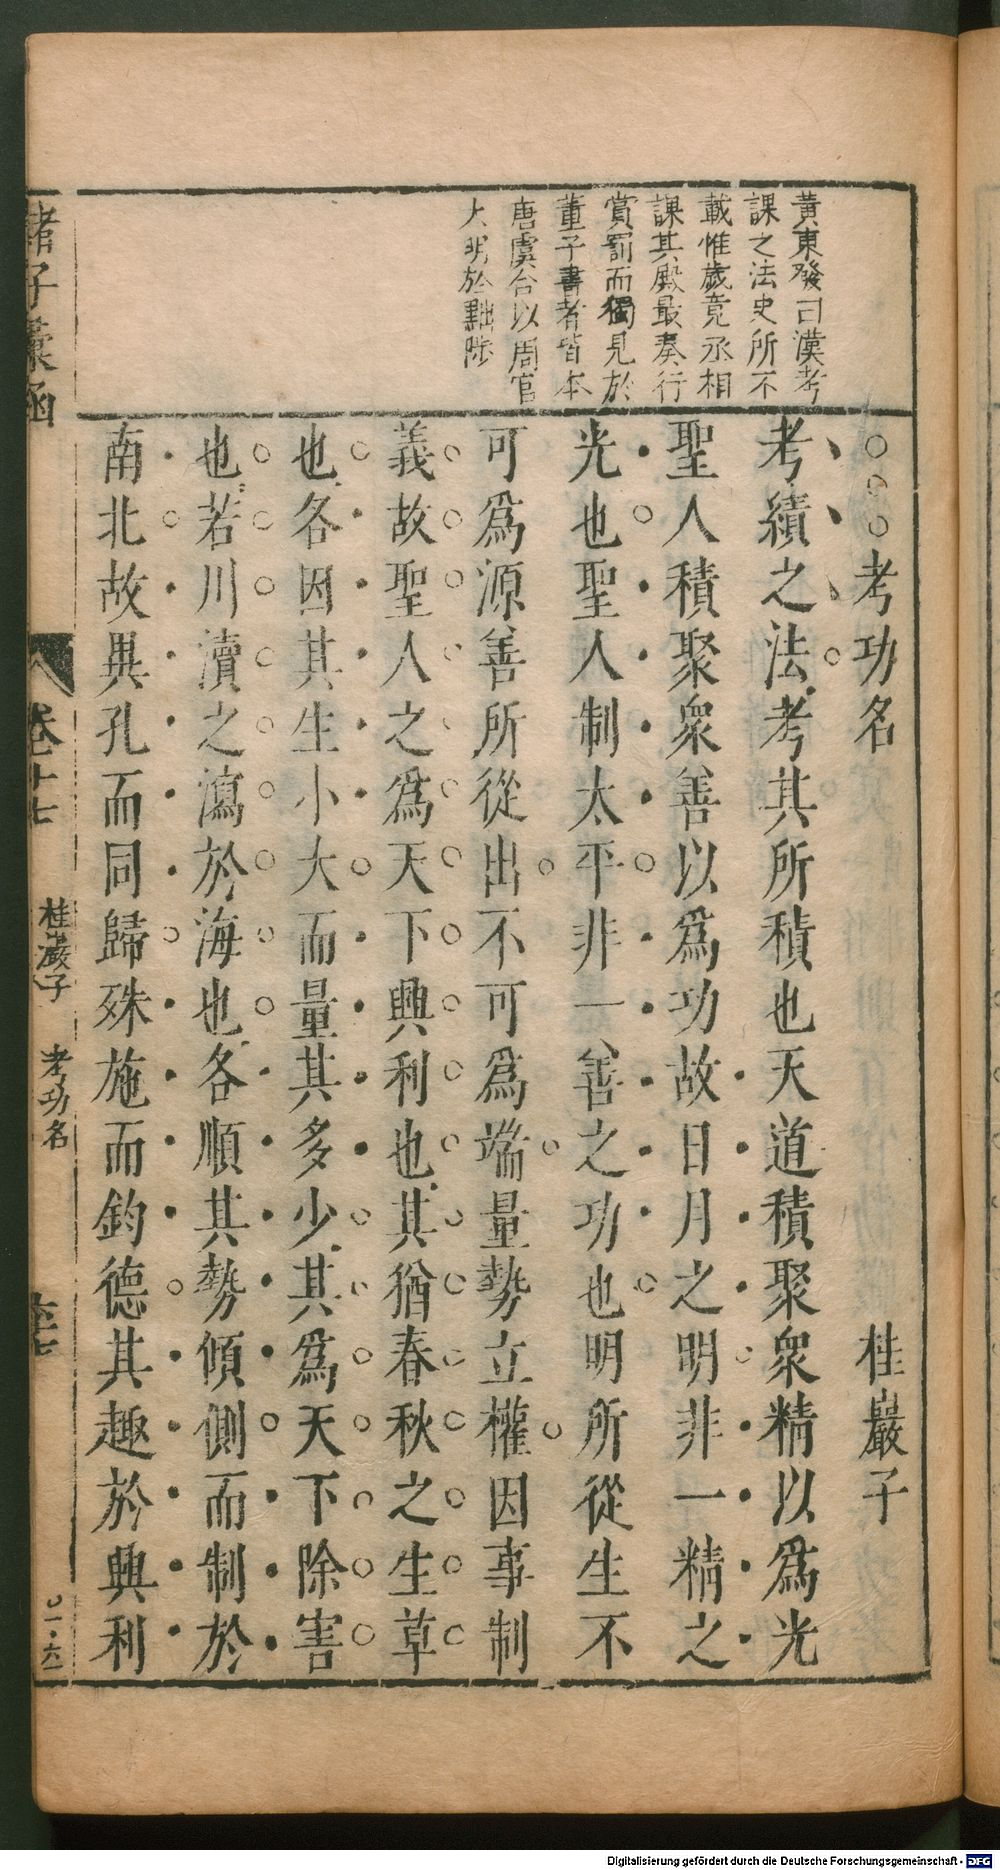 黄東發曰漢考
課之法史所不
載惟歲竟丞相
課其殿最奏行
賞罰而獨見於
董子書者皆本
唐虞合以周官
大明於黜陟
○○○考功名 桂巖子
考績之法考其所積也天道積聚衆精以爲光
聖人積聚衆善以爲功故日月之明非一精之
光也聖人制太平非一善之功也明所從生不
可爲源善所從出不可爲端量勢立權因事制
義故聖人之爲天下興利也其猶春秋之生草
也各因其生小大而量其多少其爲天下除害
也若川瀆之瀉於海也各順其勢傾側而制於
南北故異孔而同歸殊施而鈞德其趣於興利
諸子彙函
卷十七
桂巖子 考功名
Digitalisierung gefördert durch die Deutsche Forschungsgemeinschaft - DFG